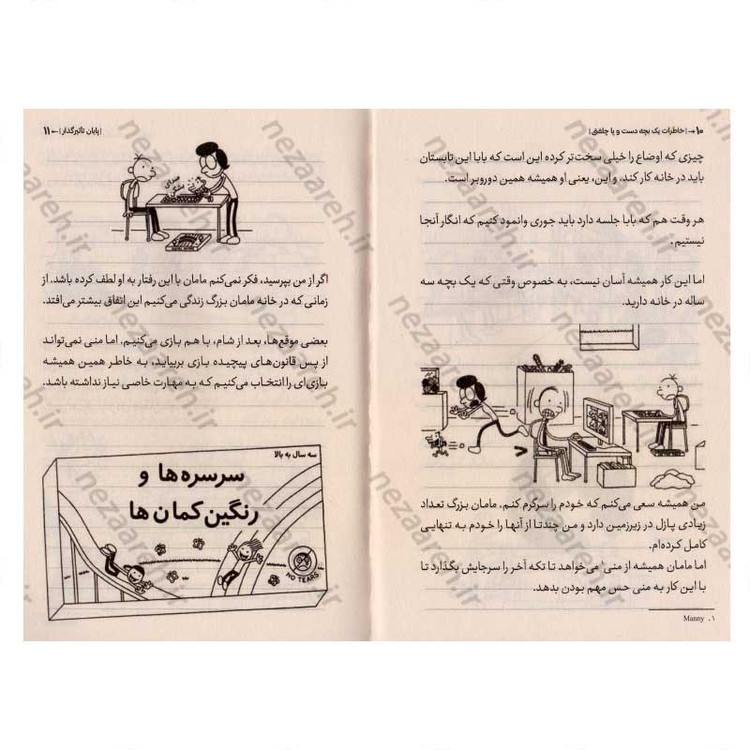 ۱۰ → | خاطرات یک بچه دست و پا چلفتی |
چیزی که اوضاع را خیلی سخت‌تر کرده این است که بابا این تابستان
باید در خانه کار کند، و این، یعنی او همیشه همین دوروبر است.
هر وقت هم که بابا جلسه دارد باید جوری وانمود کنیم که انگار آنجا
نیستیم.
اما این کار همیشه آسان نیست، به خصوص وقتی که یک بچه سه
ساله در خانه دارید.
من همیشه سعی می‌کنم که خودم را سرگرم کنم. مامان بزرگ تعداد
زیادی پازل در زیرزمین دارد و من چندتا از آنها را خودم به تنهایی
کامل کرده‌ام.
اما مامان همیشه از منی۱ می‌خواهد تا تکه آخر را سرجایش بگذارد تا
با این کار به منی حس مهم بودن بدهد.
۱. Manny
| پایان تأثیرگذار | ← ۱۱
صدای
اگر از من بپرسید، فکر نمی‌کنم مامان با این رفتار به او لطف کرده باشد. از
زمانی که در خانه مامان بزرگ زندگی می‌کنیم این اتفاق بیشتر می‌افتد.
بعضی موقع‌ها، بعد از شام، با هم بازی می‌کنیم. اما منی نمی‌تواند
از پس قانون‌های پیچیده بازی بربیاید، به خاطر همین همیشه
بازی‌ای را انتخاب می‌کنیم که به مهارت خاصی نیاز نداشته باشد.
سه سال به بالا
سرسره‌ها و
رنگین کمان ها
NO TEARS
nezaareh.ir